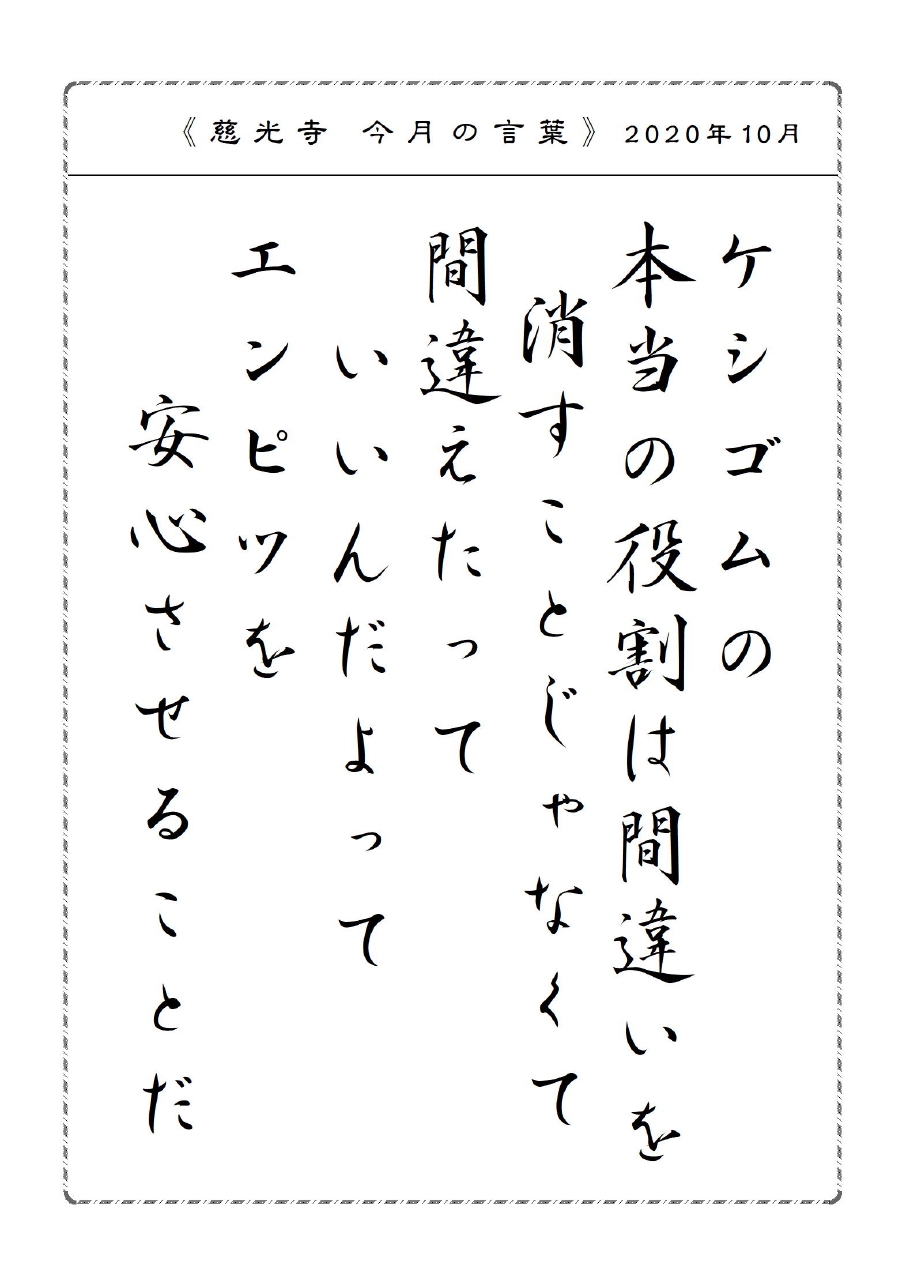 《慈光寺 今月の言葉》 2020年10月
ケシゴムの
本当の役割は間違いを
消すことじゃなくて
間違えたって
いいんだよって
エンピツを
安心させることだ